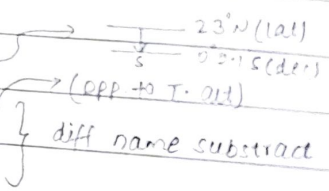 23°N (lat)
S
S (dec)
(opp to T. alt)
diff name substract